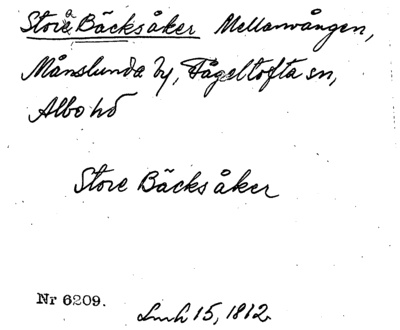 Store Bäcksåker Mellanvången,
Månslunda by, Fågeltofta sn,
Albo hd
Store Bäcksåker
Nr 6209.
Lmh 15, 1812